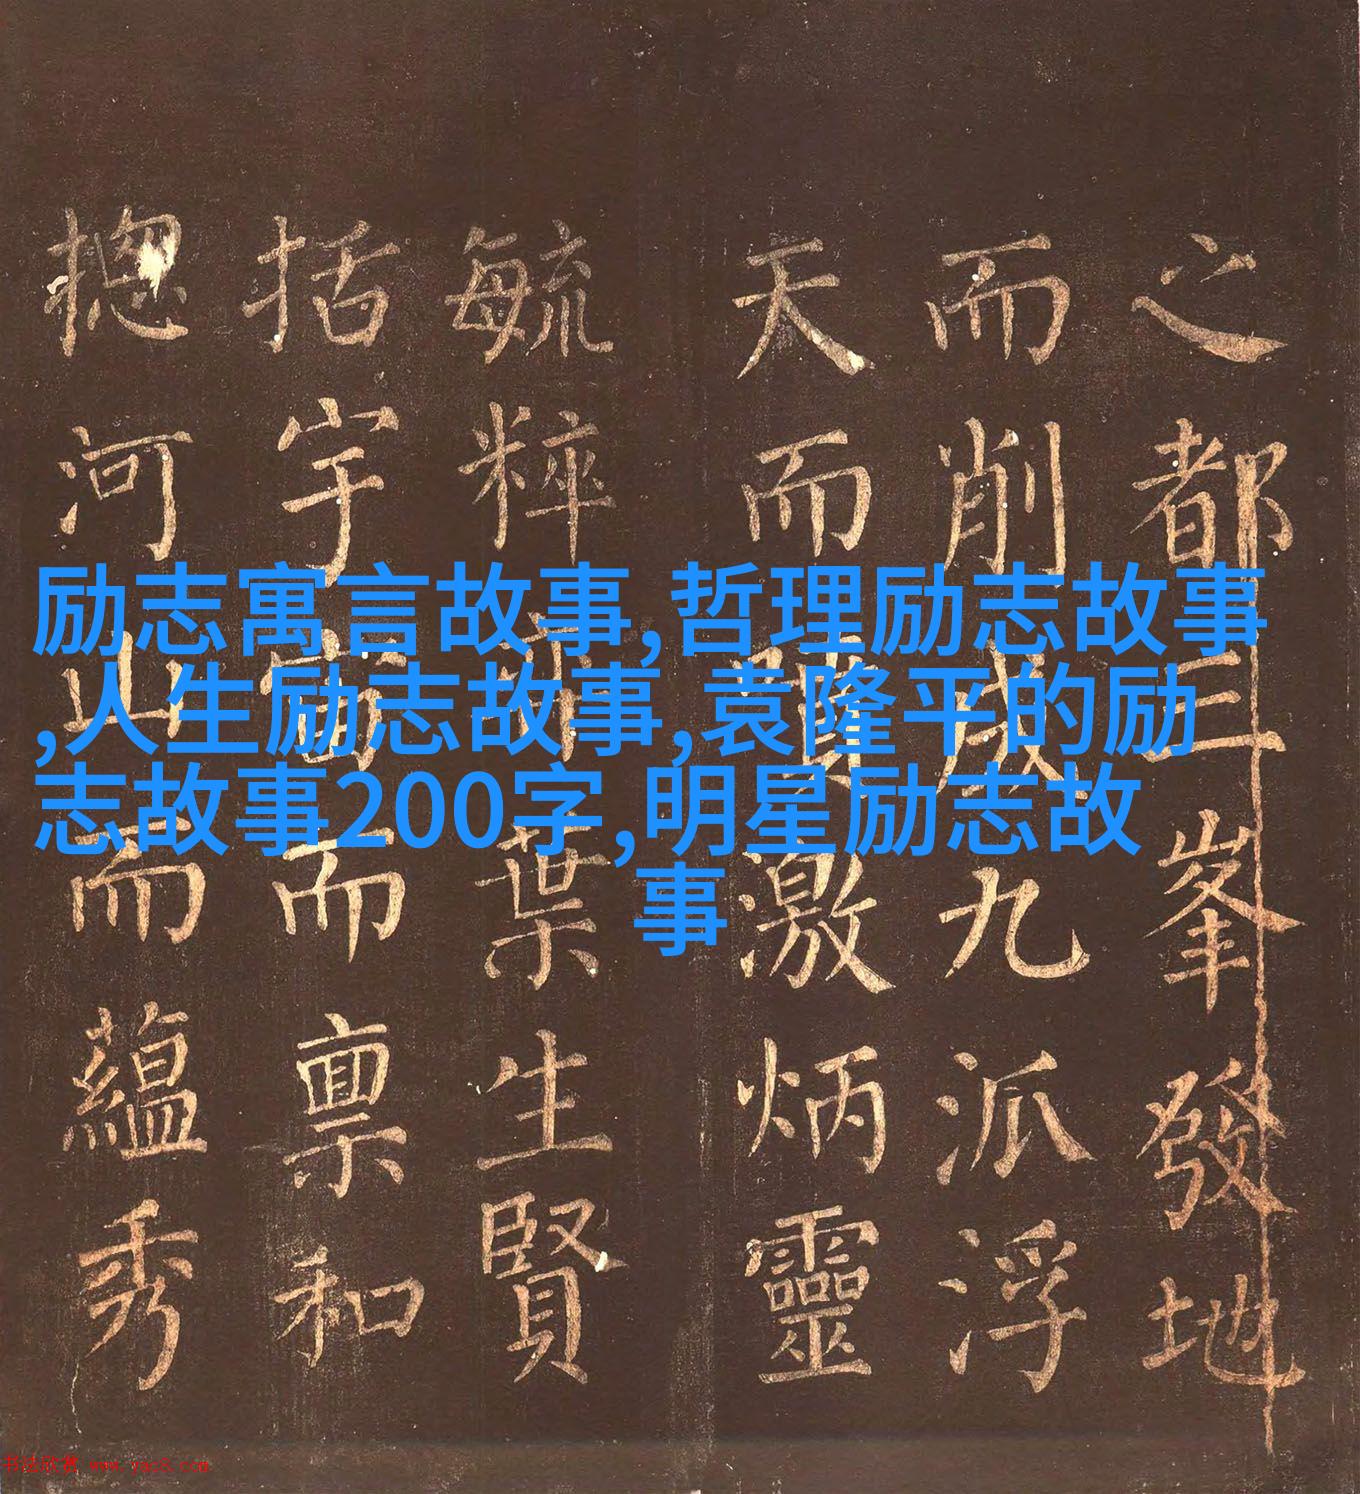 之都三峯發地
而削成九派浮
天而激炳靈
毓粹葉生賢
括宇宙而稟和
摠河山而蘊秀
励志寓言故事,哲理励志故事
,人生励志故事,袁隆平的励
志故事200字,明星励志故
事
书法欣赏 www.yac8.com